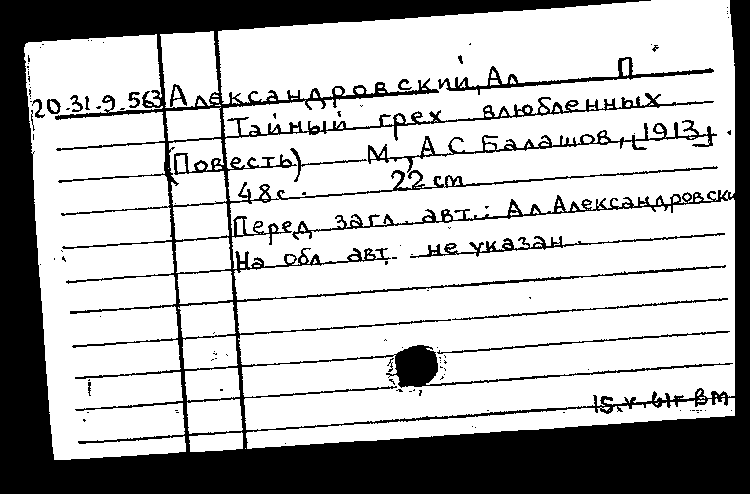 20.31.9.563 Александровский, Ал П
Тайный грех влюбленных
(Повесть) М., А С Балашов, [1913].
48с. 22 cm
Перед загл. авт.: Ал. Александровски
На обл. авт. не указан.
15.V.61г ВМ